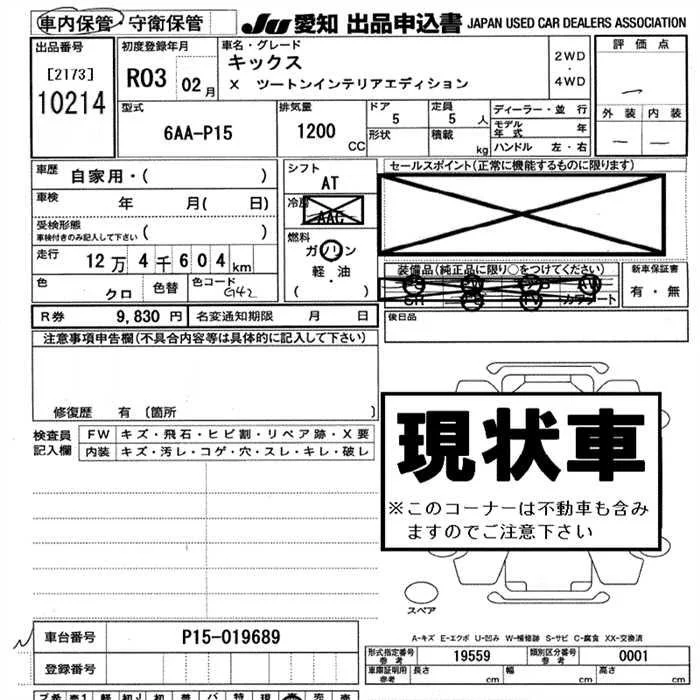 車内保管・守衛保管 JU 愛知 出品申込書 JAPAN USED CAR DEALERS ASSOCIATION
出品番号 初度登録年月 車名・グレード 評価点
[2173] R03 02月 キックス 2WD
10214 X ツートンインテリアエディション ・ 4WD
型式 排気量 ドア 定員 ディーラー・並 行 外装 内装
6AA-P15 1200 CC 5 5 人 モデル年式 年
形状 積載 kg ハンドル 左・右
車歴 自家用・( ) シフト AT セールスポイント(正常に機能するものに限ります)
車検 年 月( 日) 冷房 AAC
受検形態 ( ) 燃料
車検付きのみ記入して下さい ガソリン
走行 12万4千604km 軽・油 装備品(純正品に限り○をつけてください) 新車保証書
色 クロ 色替 色コード G42 ( ・ ) 有・無
R券 9,830 円 名変通知期限 月 日 後日品
注意事項申告欄(不具合内容等は具体的に記入して下さい)
修復歴 有 〔箇所 〕
検査員 FW キズ・飛石・ヒビ割・リペア跡・X要
記入欄 内装 キズ・汚レ・コゲ・穴・スレ・キレ・破レ
現状車
※このコーナーは不動車も含み
ますのでご注意下さい
スペア
A-キズ E-エクボ U-凹み W-補修跡 S-サビ C-腐食 XX-交換済
車台番号 P15-019689 形式指定番号 参考 19559 類別区分番号 参考 0001
登録番号 車庫証明用 参考 長さ cm 幅 cm 高さ cm